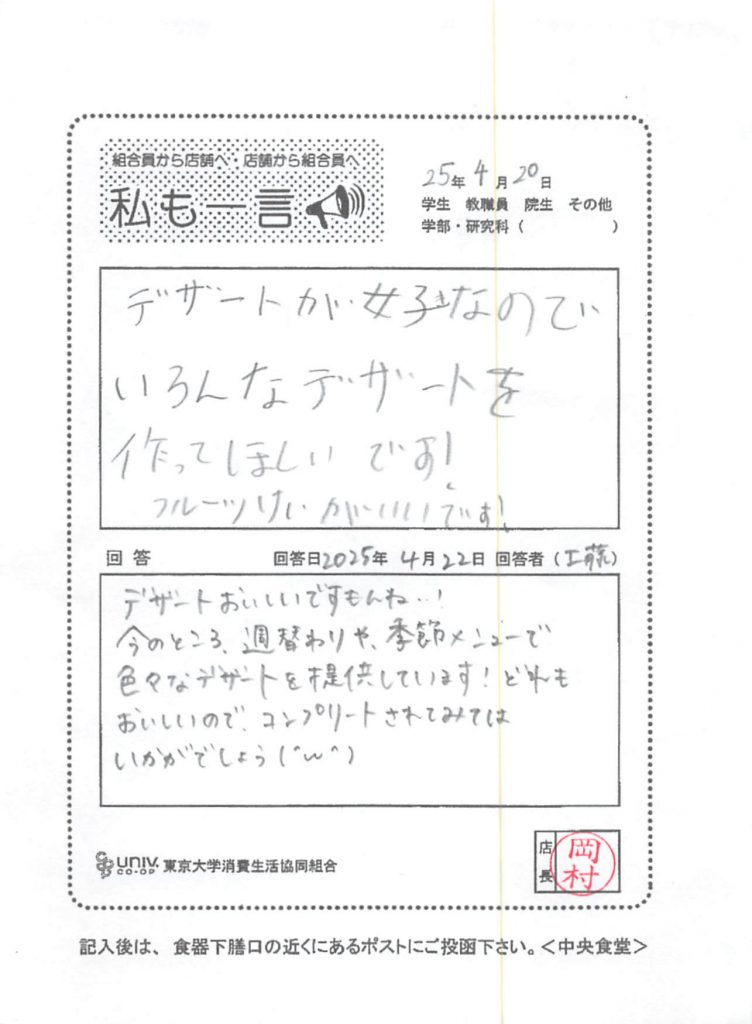 組合員から店舗へ・店舗から組合員へ
私も一言
25年 4月 20日
学生 教職員 院生 その他
学部・研究科( )
デザートが好きなので
いろんなデザートを
作ってほしいです!
フルーツけいがいいです!
回答 回答日2025年 4月22日 回答者(工藤)
デザートおいしいですもんね…!
今のところ、週替わりや、季節メニューで
色々なデザートを提供しています!どれも
おいしいので、コンプリートされてみては
いかがでしょう(^ω^)
UNIV. CO-OP 東京大学消費生活協同組合
店長 岡村
記入後は、食器下膳口の近くにあるポストにご投函下さい。<中央食堂>